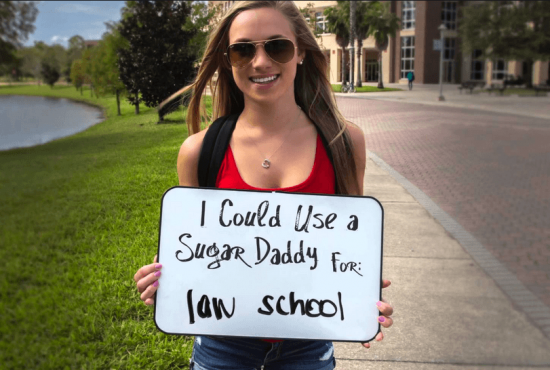 I Could Use a
Sugar Daddy For:
law school